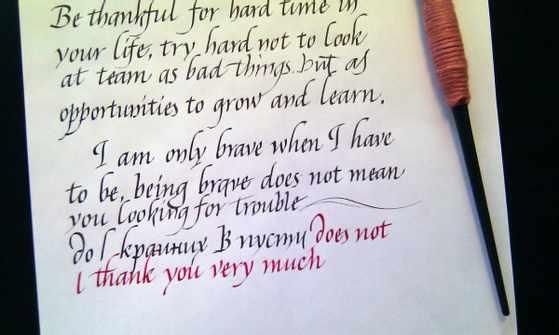 Be thankful for hard time in
your life, try hard not to look
at team as bad things. but as
opportunities to grow and learn.
I am only brave when I have
to be, being brave does not mean
you looking for trouble
do I В пусти does not
I thank you very much